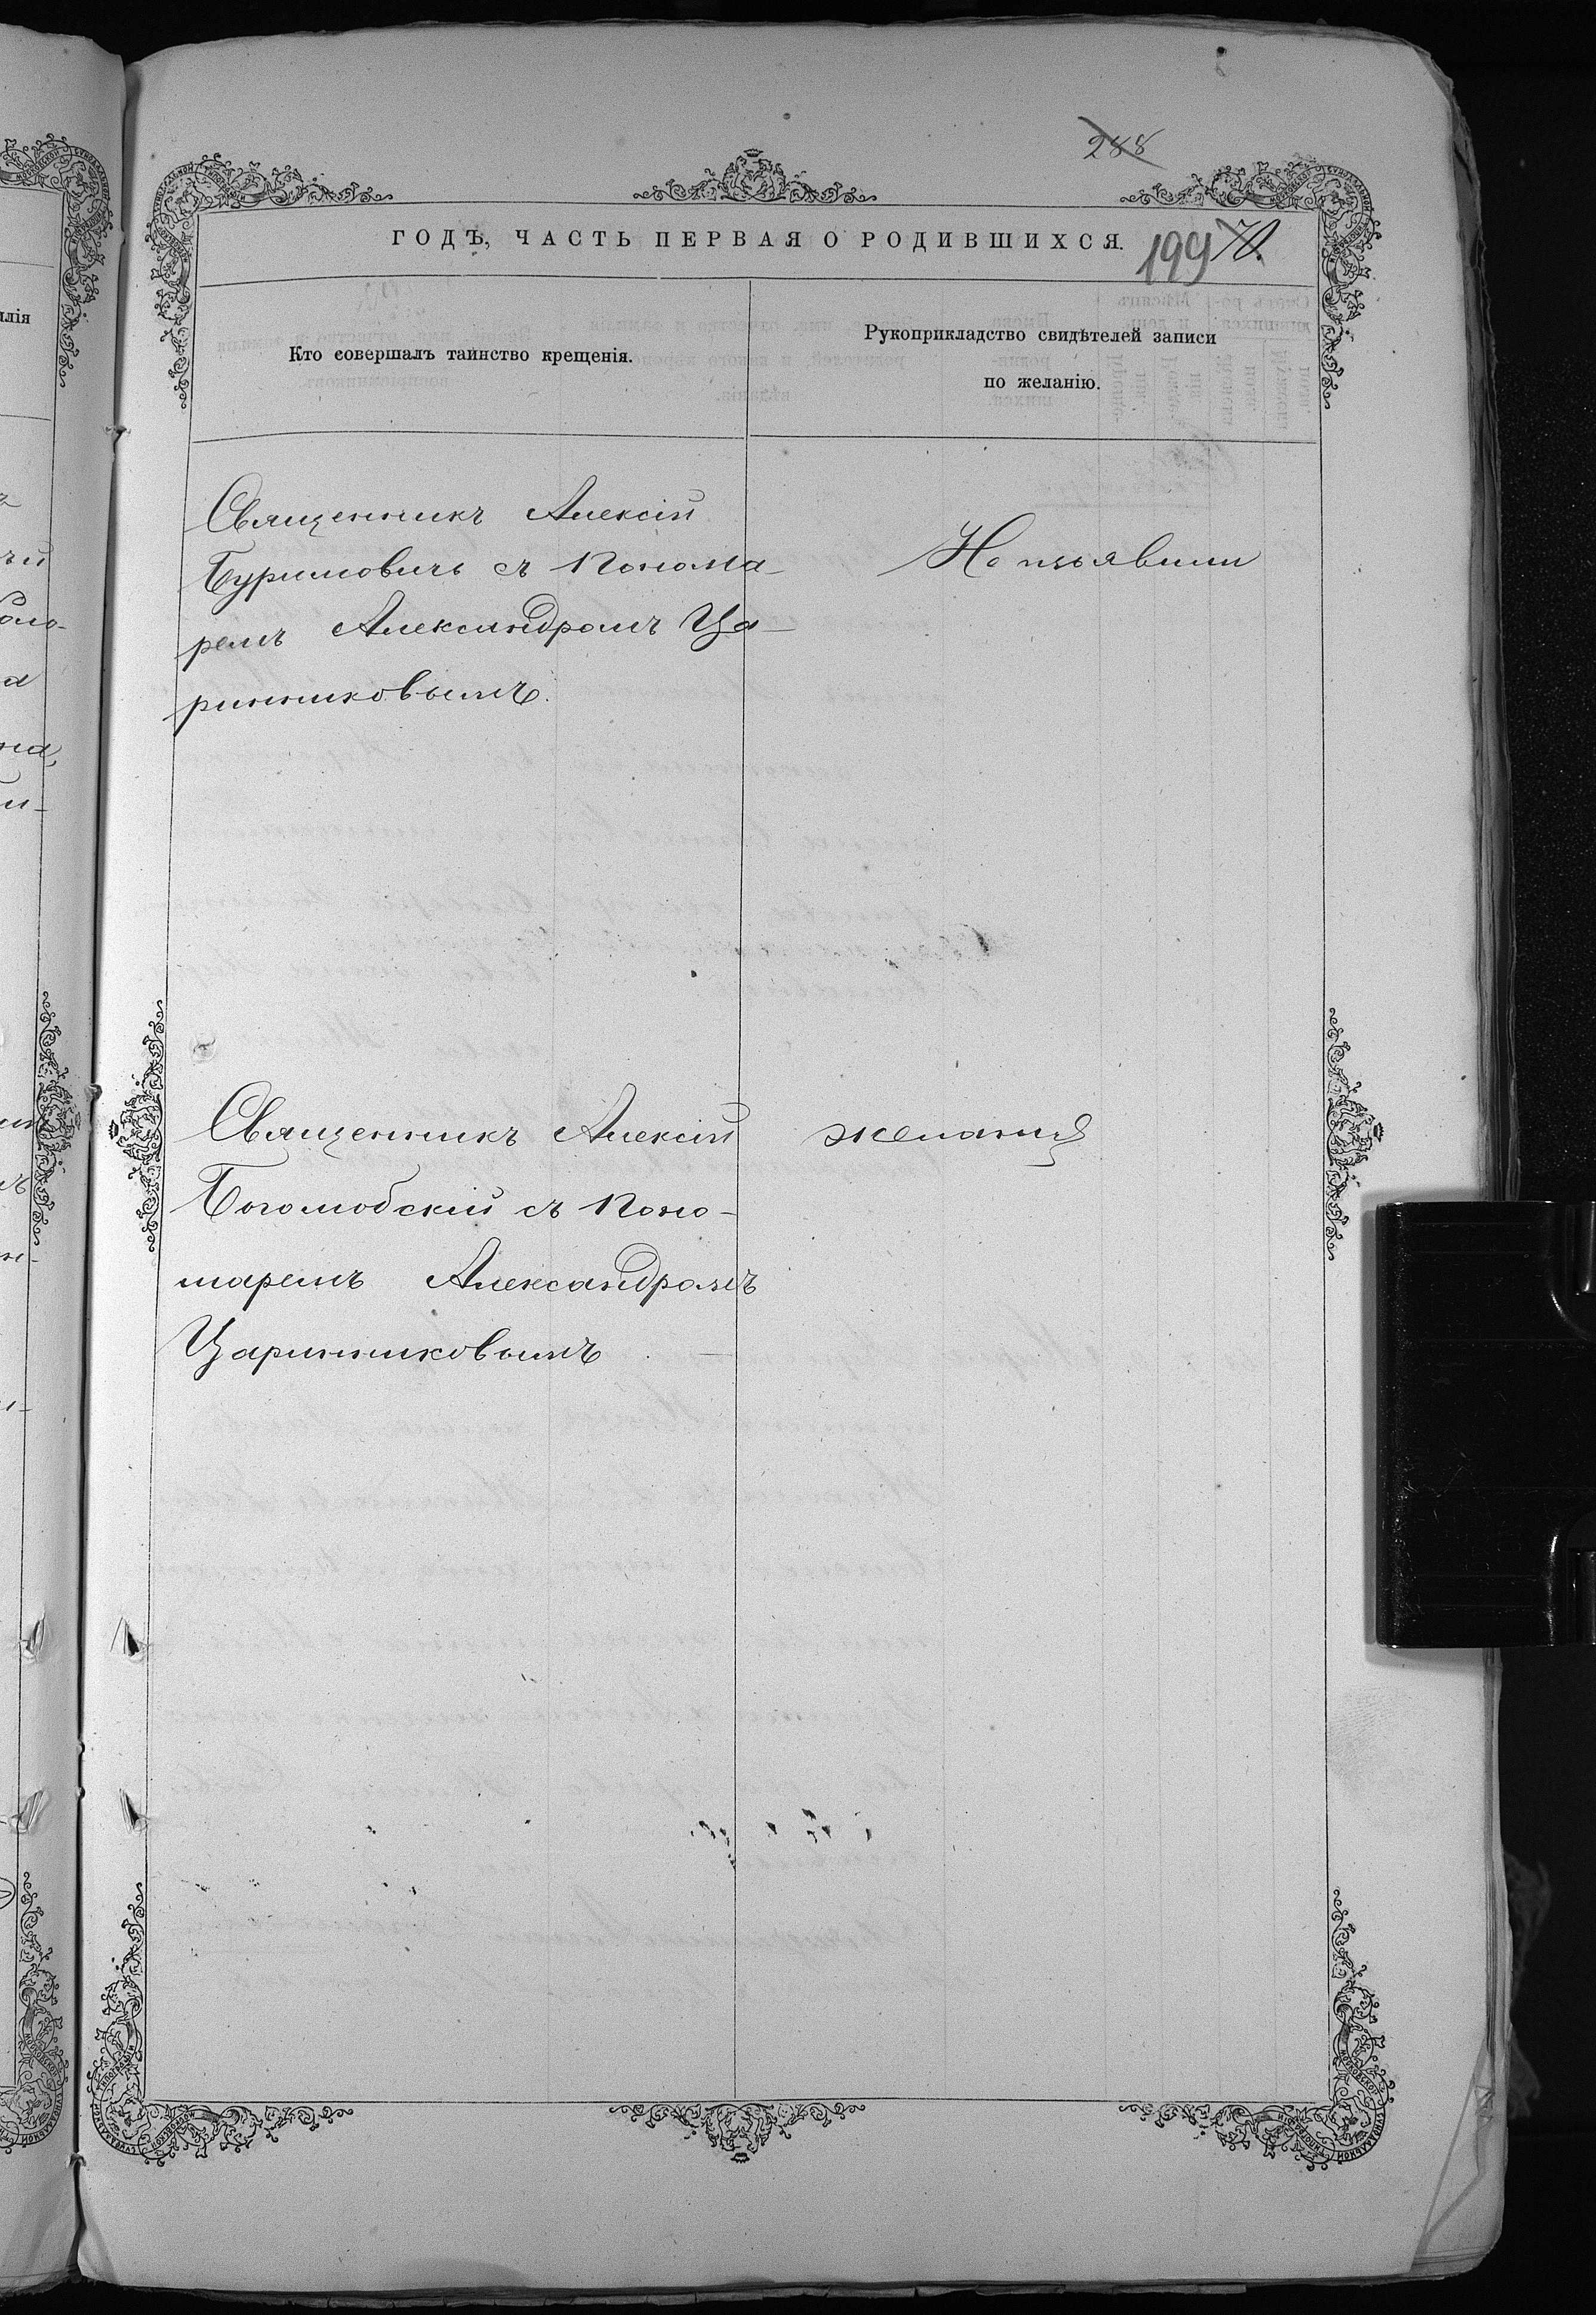 288
ГОДЪ, ЧАСТЬ ПЕРВАЯ О РОДИВШИХСЯ.
199
Кто совершалъ таинство крещенія.
Рукоприкладство свидѣтелей записи
по желанію.
Священникъ Алексій
Буримовичъ съ Понома-
ремъ Александромъ Ца-
ринниковымъ.
Не изъявили
Священникъ Алексій
Боголюбскій съ Поно-
маремъ Александромъ
Царинниковымъ
желанія